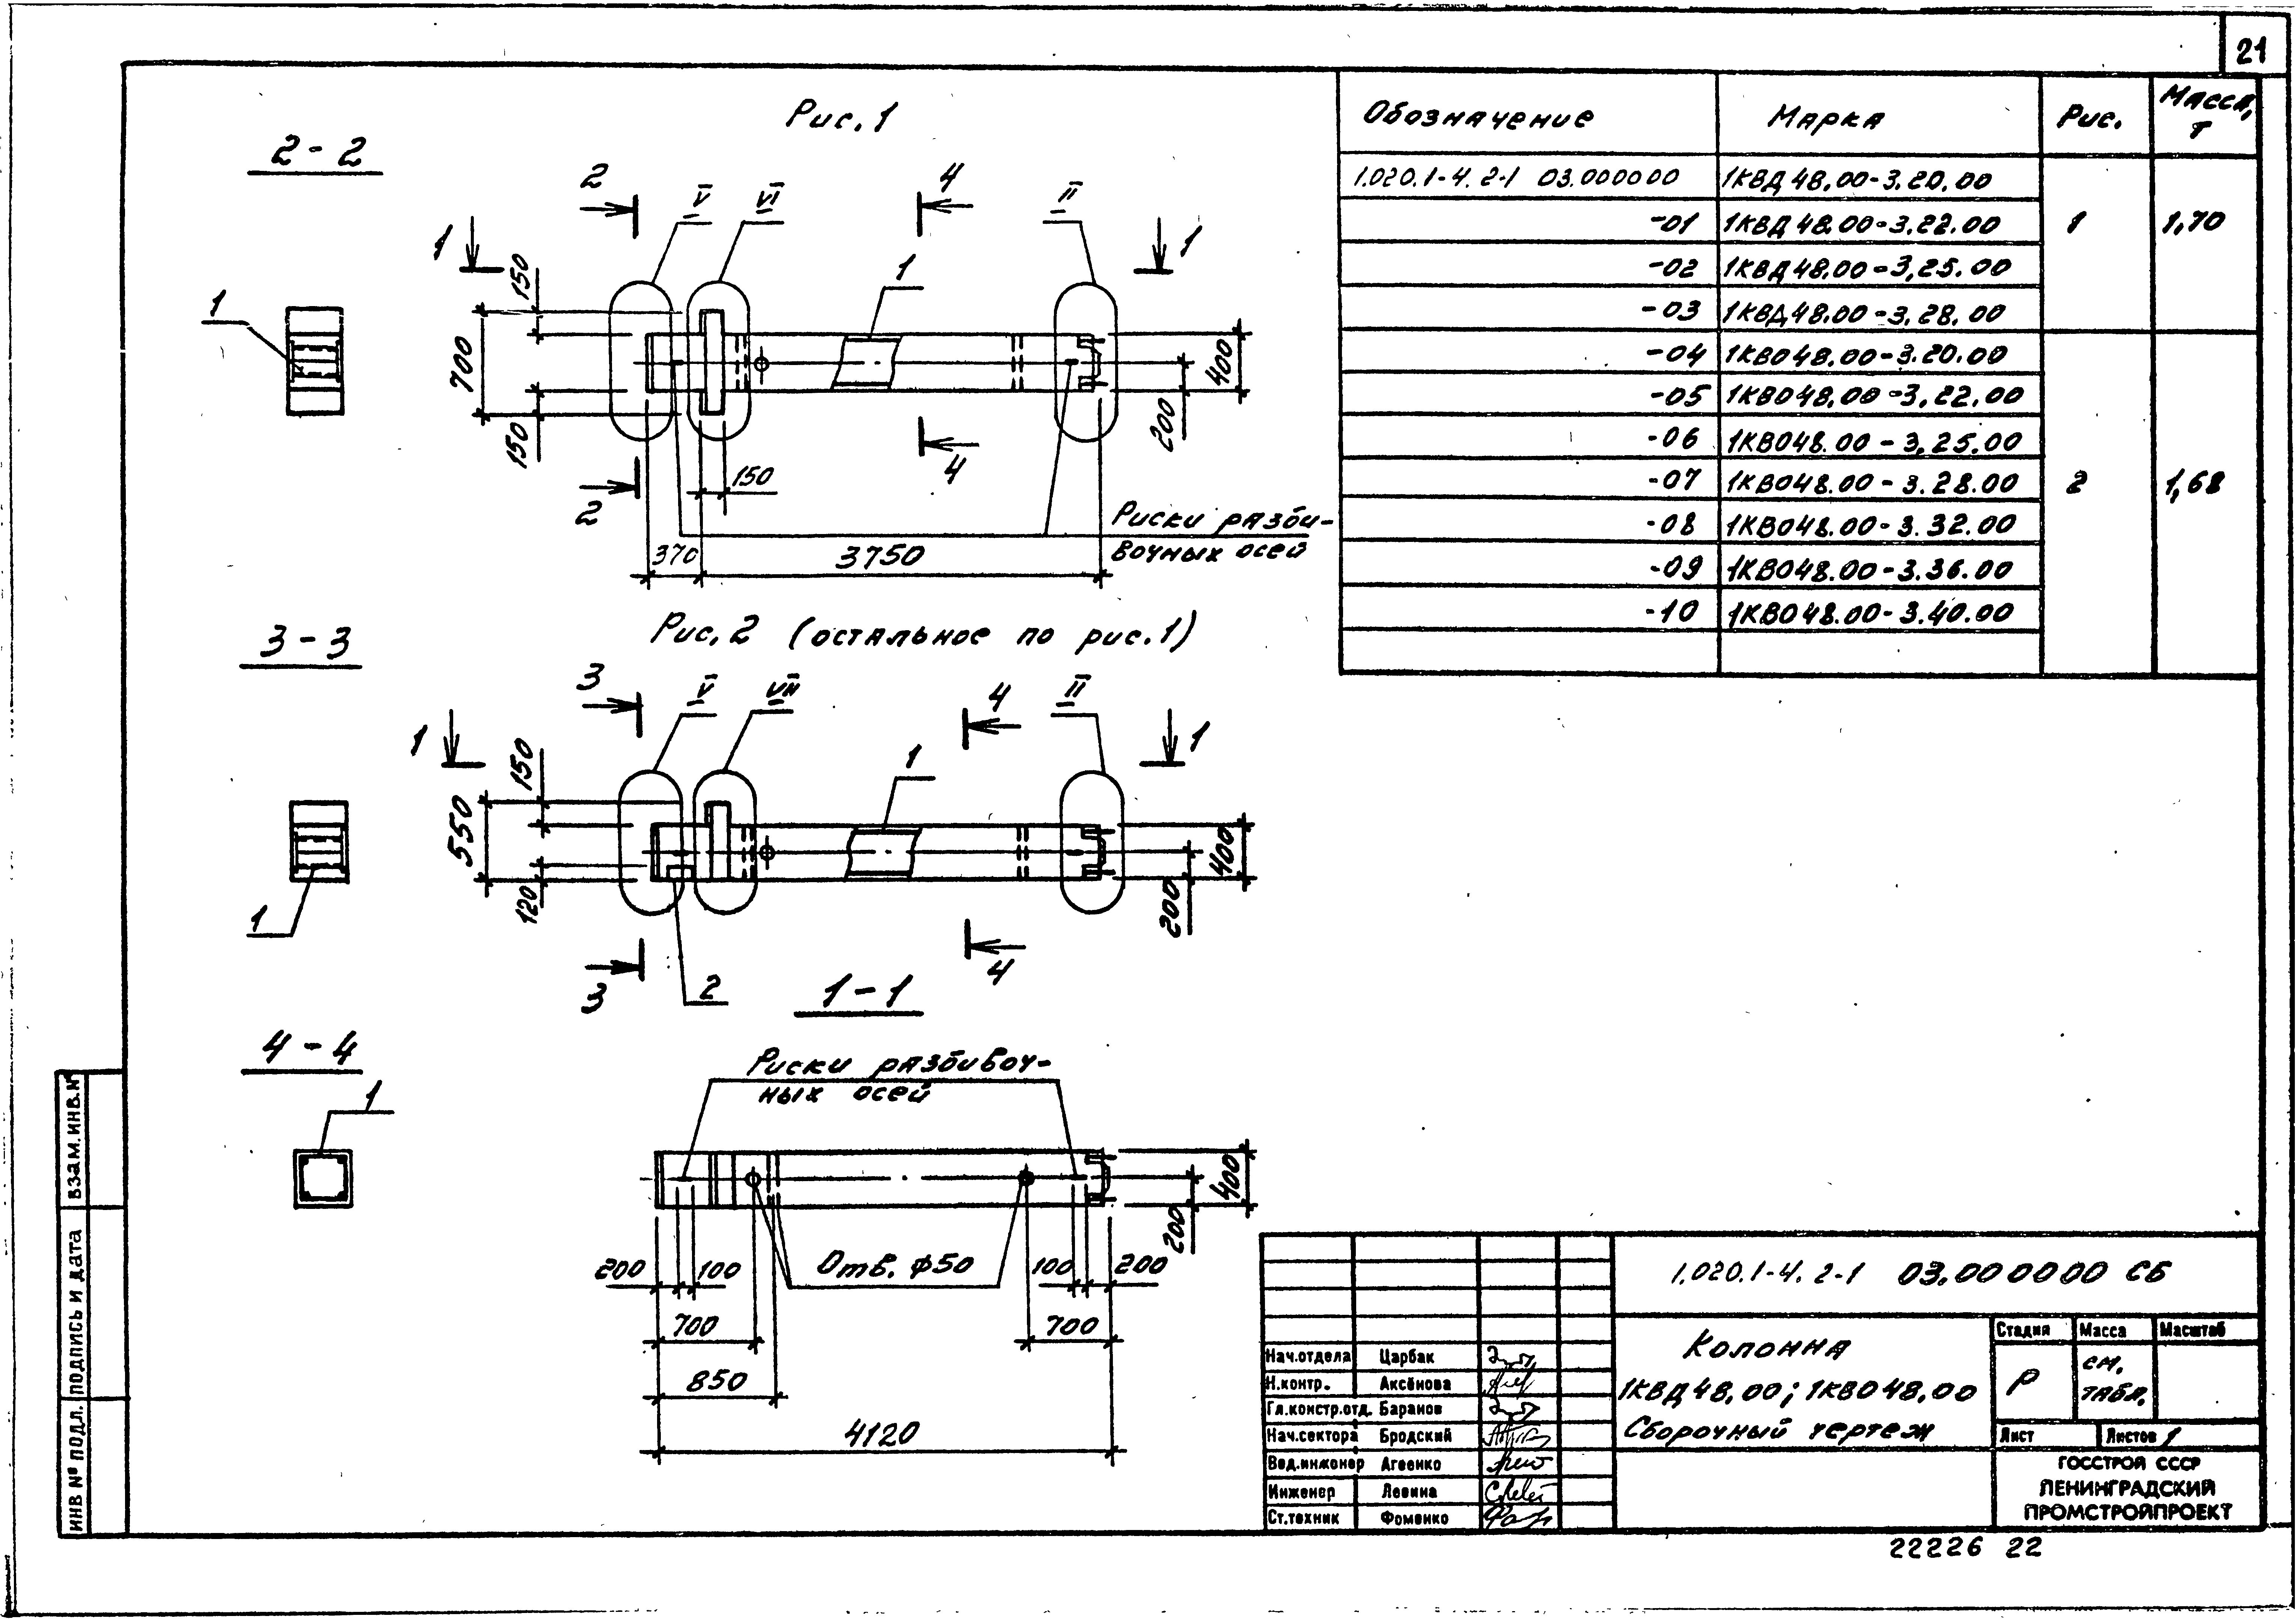 21
Рис. 1
2-2
2
V
VI
4
II
1
1
150
1
1
700
400
200
150
2
4
150
Риски разби-
вочных осей
370
3750
Обозначение Марка Рис. Масса, т
1.020.1-4. 2-1 03.000000 1КВД48.00-3.20.00
-01 1КВД48.00-3.22.00 1 1,70
-02 1КВД48.00-3.25.00
-03 1КВД48.00-3.28.00
-04 1КВО48.00-3.20.00
-05 1КВО48.00-3.22.00
-06 1КВО48.00-3.25.00
-07 1КВО48.00-3.28.00 2 1,68
-08 1КВО48.00-3.32.00
-09 1КВО48.00-3.36.00
-10 1КВО48.00-3.40.00
Рис. 2 (остальное по рис. 1)
3-3
3
V
VII
4
II
1
1
150
1
550
400
200
120
1
3
2
4
1-1
4-4
1
Риски разбивоч-
ных осей
400
200
200
100
Отв. ϕ50
100
200
700
700
850
4120
1.020.1-4. 2-1 03.000000 СБ
Колонна
1КВД48.00; 1КВО48.00
Сборочный чертеж
Стадия Масса Масштаб
Р см. табл.
Лист Листов 1
ГОССТРОЙ СССР
ЛЕНИНГРАДСКИЙ
ПРОМСТРОЙПРОЕКТ
Нач.отдела Царбак
Н.контр. Аксёнова
Гл.констр.отд. Баранов
Нач.сектора Бродский
Вед.инженер Агеенко
Инженер Левина
Ст.техник Фоменко
ИНВ № ПОДЛ. ПОДПИСЬ И ДАТА ВЗАМ.ИНВ.№
22226 22